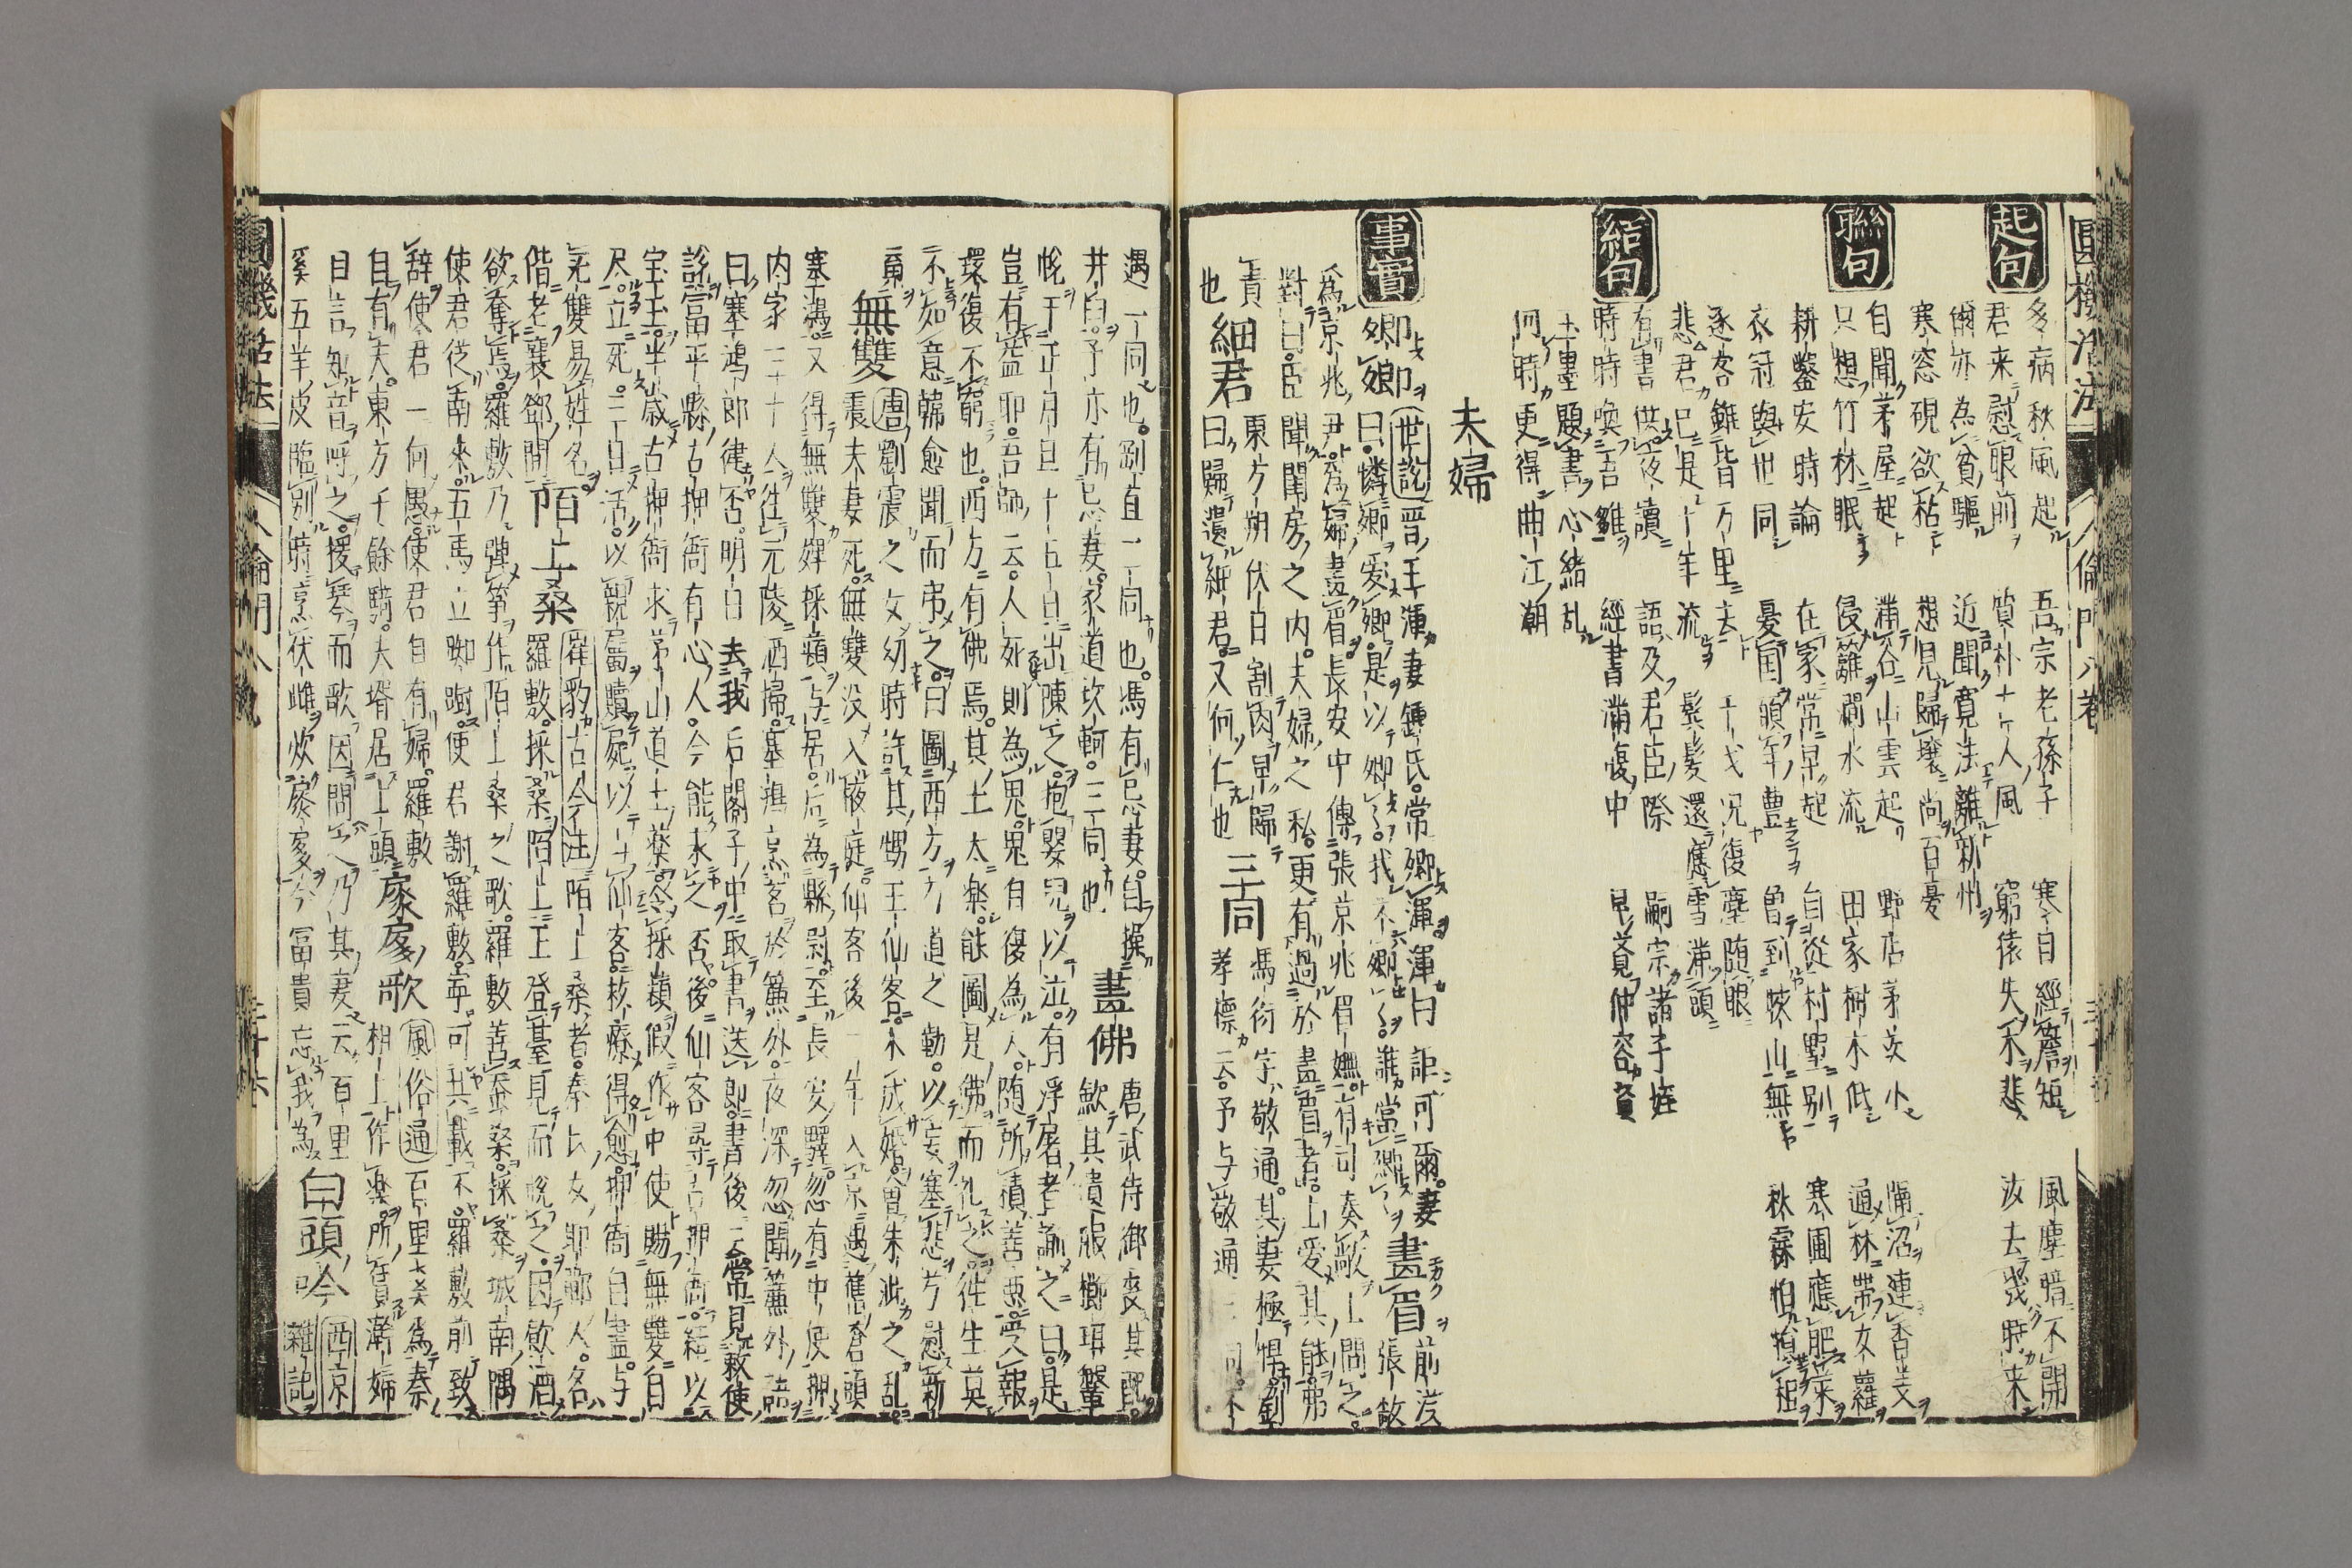 圓機活法 人倫門八卷
起句
多病秋風起 吾宗老孫子 寒日經簷短 風塵暗不開
君来慰眼前 質朴古人風 窮猿失木悲 汝去幾時来
爾亦為貧驅 近聞寛法離新州
寒窓硯欲粘 想見歸壌尚百憂
聯句
自聞茅屋起 滿谷山雲起 野店茅茨小 連香
只想竹林眠 侵籬澗水流 田家樹木低 通林帶女蘿
耕鑿安時論 在家常早起 自從村墅別 寒圃應肥菜
衣冠與世同 憂國願年豊 曽到峽山無 秋霖怕損租
逐客雖皆万里去 干戈况復塵随眼
悲君已是十年流 鬂髪還應雪滿頭
結句
有書供夜讀 語及君臣際 嗣宗諸子姪
時時喚吾雛 經書滿腹中 早覓仲容賢
玉壘題書心緒乱
何時更得曲江潮
夫婦
事實
卿卿 世説 晋王渾妻鍾氏常卿渾渾曰詎可爾妻
曰憐卿愛卿是以卿卿我不卿卿誰當卿卿 畫眉 前漢張敞
為京兆尹為婦畫眉長安中傳張京兆眉嫵有司奏敞上問之
對曰臣聞閨房之内夫婦之私更有過於畫眉者上愛其能弗
責 東方朔伏日割肉早歸 馮衍字敬通其妻極悍劉
也 細君 曰歸遺細君又何仁也 三同 孝標云予与敬通三同
遇一同也
井臼予亦有忌妻家道坎軻三同也 畫佛 唐武侍御妻其
豈有 耶吾師云人死則為鬼鬼有復為人随所積善悪受報
環復不窮也西方有佛焉其土太樂能圖是佛而礼之徃生莫
不如意韓愈聞而弔之曰圖西方 道之勤以妄塞悲兮慰新
無雙 唐劉震之女幼時許其甥王仙客未成婚會朱泚之乱
震夫妻死無雙没入掖庭仙客後一年入京遇舊蒼頭
塞鴻又得無雙婢採蘋与居后為縣尉至長安驛忽有中使押
内家三十人往元陵洒掃塞鴻烹茗於簾外夜深忽聞簾外語
曰塞鴻郎健否明日去我后閤子中取書送郎書後云常見敕使
説冨平縣古押衙有心人今能求之否後仙客尋古押衙結以
宝玉半歳古押衙求茅山道士薬令採蘋假作中使賜無雙自
尽立死三日活以親屬贖屍以 仙客救療得愈押衙自盡与
无雙易姓名 陌上桑 崔豹古今注 陌上桑者秦氏女邯鄲人名
羅敷採桑陌上王登臺見而悦之因飲酒
欲奪焉羅敷乃弾筝作陌上桑之歌羅敷善蚕桑採桑城南隅
使君従南來五馬立踟蹰使君謝羅敷寧可共載不羅敷前致
辞使君一何愚使君自有婦羅敷
自有夫東方千餘騎夫壻居上頭 扊扅歌 風俗通 百里奚為秦
相上作樂所賃澣婦
自言知音呼之援琴而歌因問之乃其妻云百里
奚五羊皮臨別時烹伏雌炊扊扅今冨貴忘我為 白頭吟 西京雜記
圓機活法 人倫門八卷